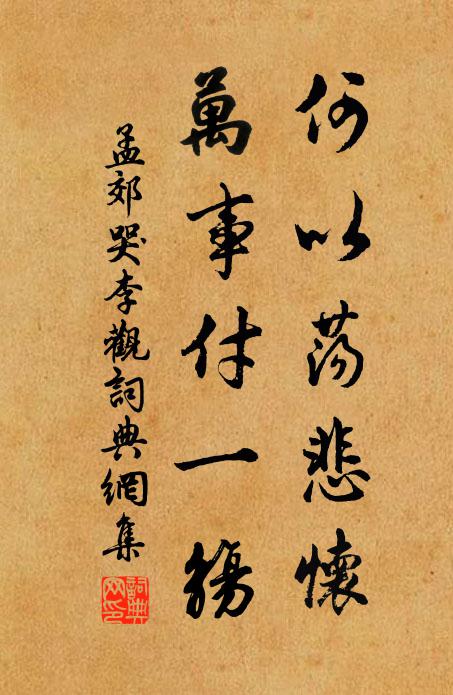 何以蕩悲懷
萬事付一觴
孟郊哭李觀詞典網集
詞典網印